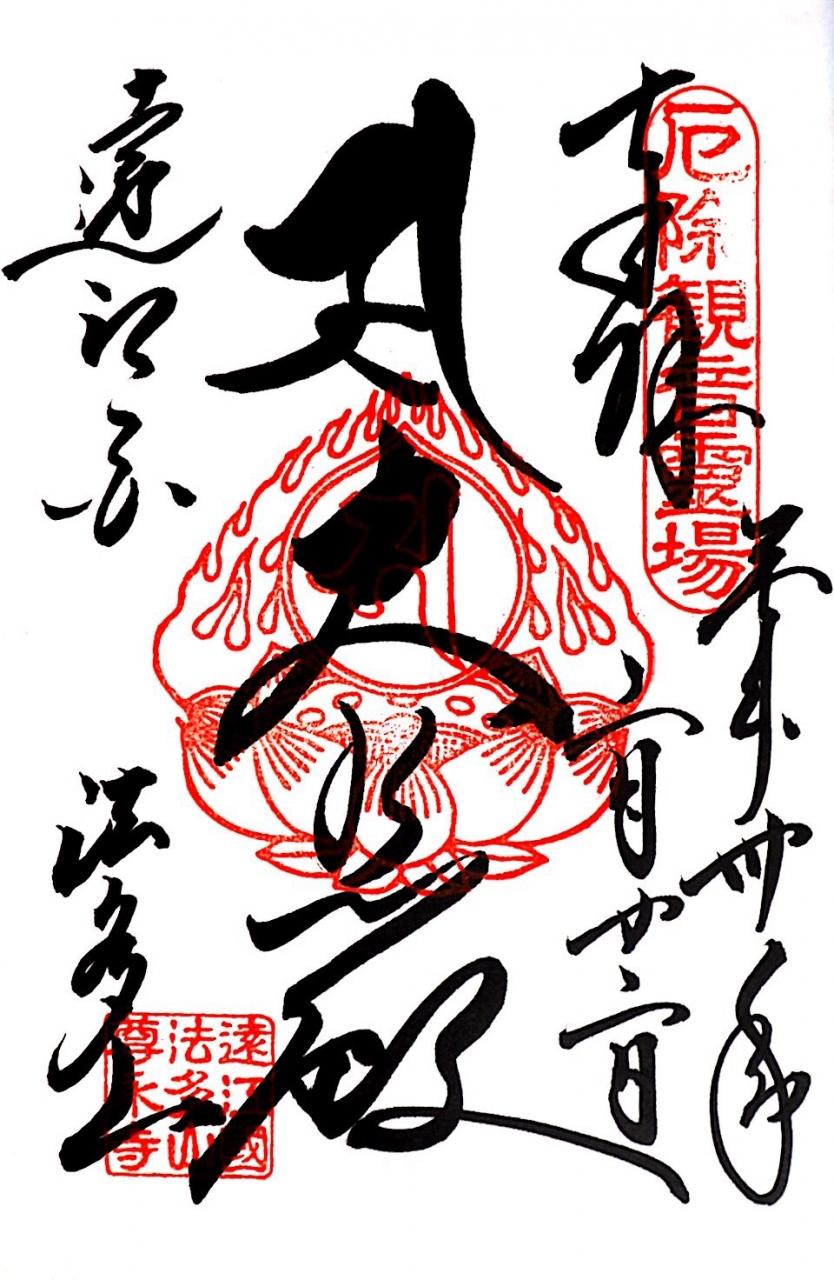 奉拝
厄除観音霊場
平成卅年
二月廿二日
大悲殿
遠江国
法多山
遠江國
法多山
尊永寺